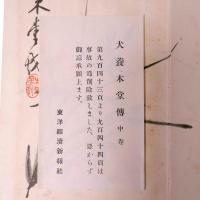 犬養木堂傳 中卷
第九百四十三頁より九百四十四頁は
事故の爲削除致しました。惡からず
御諒承願上ます。
東洋經濟新報社